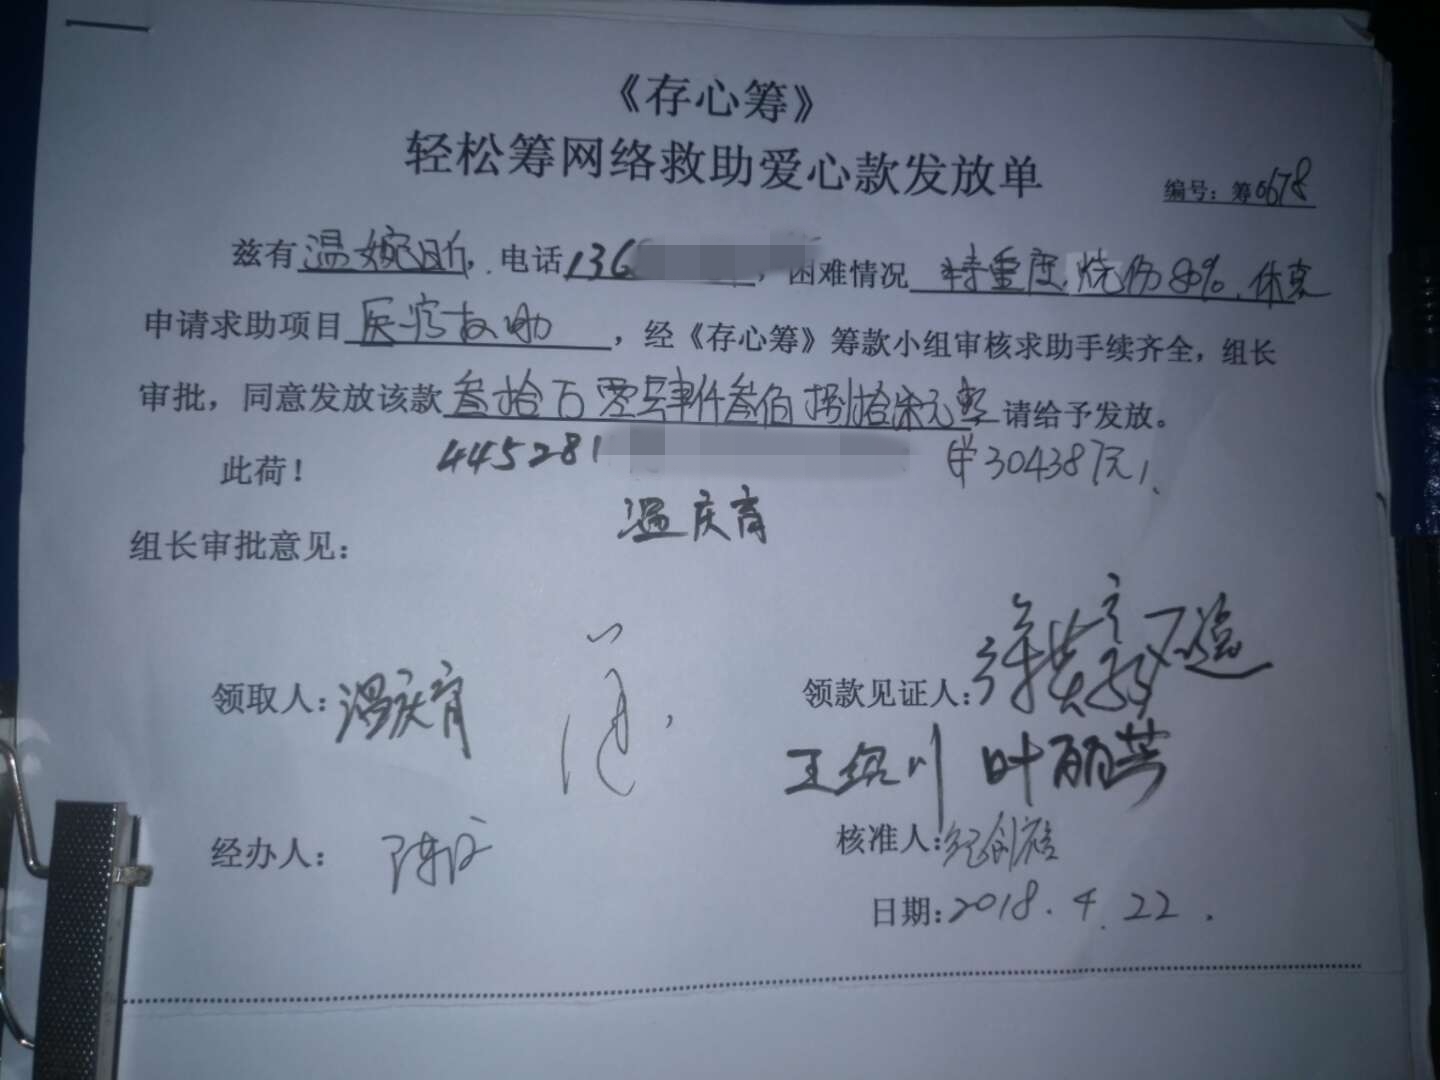 《存心筹》
轻松筹网络救助爱心款发放单
编号：筹0678
兹有温婉昕，电话136，困难情况特重度烧伤80%、休克
申请求助项目医疗救助，经《存心筹》筹款小组审核求助手续齐全，组长
审批，同意发放该款叁拾万零肆仟叁佰捌拾柒元整请给予发放。
此荷！
445281
304387元
温庆育
组长审批意见：
领取人：温庆育
领款见证人：
王绍川 叶丽芸
经办人：
核准人：
日期：2018.4.22.